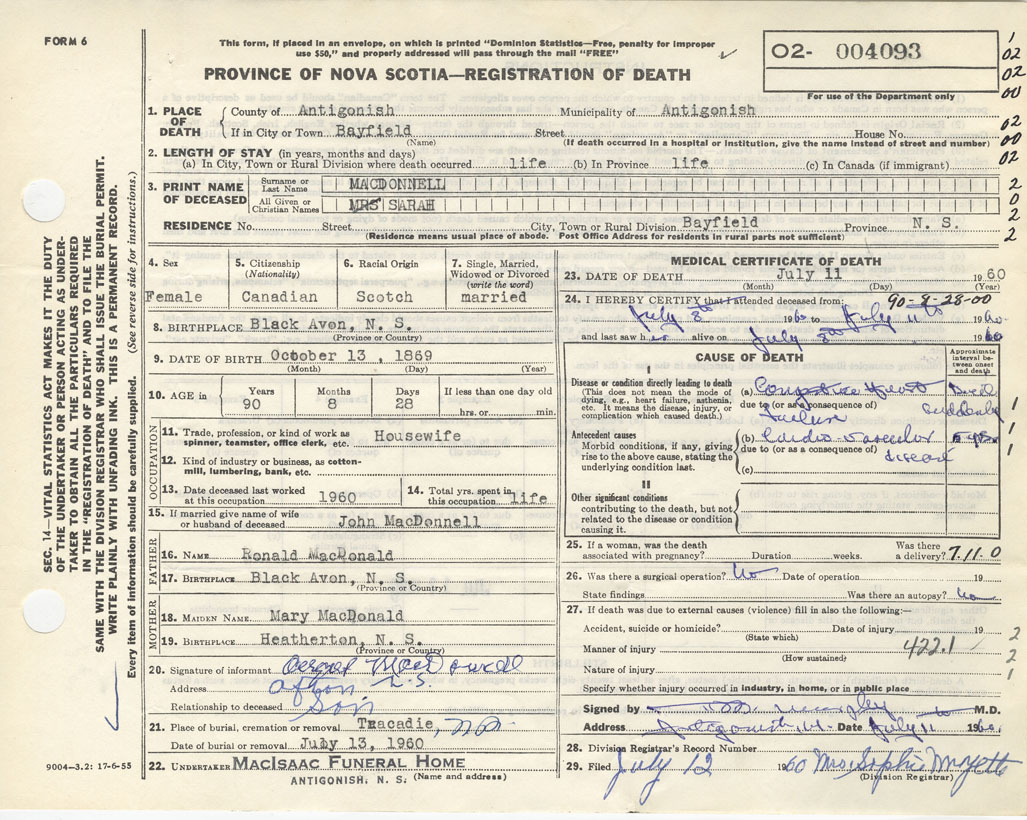 FORM 6
This form, if placed in an envelope, on which is printed "Dominion Statistics—Free, penalty for improper
use $50," and properly addressed will pass through the mail "FREE"
PROVINCE OF NOVA SCOTIA—REGISTRATION OF DEATH
02- 004093
For use of the Department only
1
02
02
00
02
00
02
2
0
2
2
SEC. 14—VITAL STATISTICS ACT MAKES IT THE DUTY
OF THE UNDERTAKER OR PERSON ACTING AS UNDER-
TAKER TO OBTAIN ALL THE PARTICULARS REQUIRED
IN THE "REGISTRATION OF DEATH" AND TO FILE THE
SAME WITH THE DIVISION REGISTRAR WHO SHALL ISSUE THE BURIAL PERMIT.
WRITE PLAINLY WITH UNFADING INK. THIS IS A PERMANENT RECORD.
Every item of information should be carefully supplied. (See reverse side for instructions.)
1. PLACE OF DEATH
County of Antigonish Municipality of Antigonish
If in City or Town Bayfield Street House No.
(Name) (If death occurred in a hospital or institution, give the name instead of street and number)
2. LENGTH OF STAY (in years, months and days)
(a) In City, Town or Rural Division where death occurred life (b) In Province life (c) In Canada (if immigrant)
3. PRINT NAME OF DECEASED
Surname or Last Name MACDONNELL
All Given or Christian Names MRS SARAH
RESIDENCE No. Street City, Town or Rural Division Bayfield Province N. S.
(Residence means usual place of abode. Post Office Address for residents in rural parts not sufficient)
4. Sex
Female
5. Citizenship
(Nationality)
Canadian
6. Racial Origin
Scotch
7. Single, Married,
Widowed or Divorced
(write the word)
married
8. BIRTHPLACE Black Avon, N. S.
(Province or Country)
9. DATE OF BIRTH October 13 , 1869
(Month) (Day) (Year)
10. AGE in
Years 90
Months 8
Days 28
If less than one day old
hrs. or min.
OCCUPATION
11. Trade, profession, or kind of work as
spinner, teamster, office clerk, etc. Housewife
12. Kind of industry or business, as cotton-
mill, lumbering, bank, etc.
13. Date deceased last worked
at this occupation 1960
14. Total yrs. spent in
this occupation life
15. If married give name of wife
or husband of deceased John MacDonnell
FATHER
16. NAME Ronald MacDonald
17. BIRTHPLACE Black Avon, N. S.
(Province or Country)
MOTHER
18. MAIDEN NAME Mary MacDonald
19. BIRTHPLACE Heatherton, N. S.
(Province or Country)
20. Signature of informant MacDonnell
Address Afton N.S.
Relationship to deceased Son
21. Place of burial, cremation or removal Tracadie, NS
Date of burial or removal July 13, 1960
22. UNDERTAKER MACISAAC FUNERAL HOME
ANTIGONISH, N. S. (Name and address)
9004—3.2: 17-6-55
MEDICAL CERTIFICATE OF DEATH
23. DATE OF DEATH July 11 1960
(Month) (Day) (Year)
24. I HEREBY CERTIFY that I attended deceased from: 90-8-28-00
July 8th 1960 to July 11th 1960
and last saw her alive on July 8th 1960
CAUSE OF DEATH
Approximate
interval be-
tween onset
and death
I
Disease or condition directly leading to death
(This does not mean the mode of
dying, e.g., heart failure, asthenia,
etc. It means the disease, injury, or
complication which caused death.)
(a) Congestive heart Died
due to (or as a consequence of) suddenly
failure
1
Antecedent causes
Morbid conditions, if any, giving
rise to the above cause, stating the
underlying condition last.
(b) Cardio-vascular
due to (or as a consequence of)
disease
(c)
1
1
II
Other significant conditions
contributing to the death, but not
related to the disease or condition
causing it.
25. If a woman, was the death
associated with pregnancy? Duration weeks. Was there
a delivery? 7.11.0
26. Was there a surgical operation? No Date of operation 19
State findings Was there an autopsy? No
27. If death was due to external causes (violence) fill in also the following:—
Accident, suicide or homicide? Date of injury 19
(State which)
Manner of injury 422.1
(How sustained)
Nature of injury
Specify whether injury occurred in industry, in home, or in public place
2
2
1
Signed by M.D.
Address Antigonish Date July 11 1960
28. Division Registrar's Record Number
29. Filed July 12 1960 Mrs. Sophie
(Division Registrar)